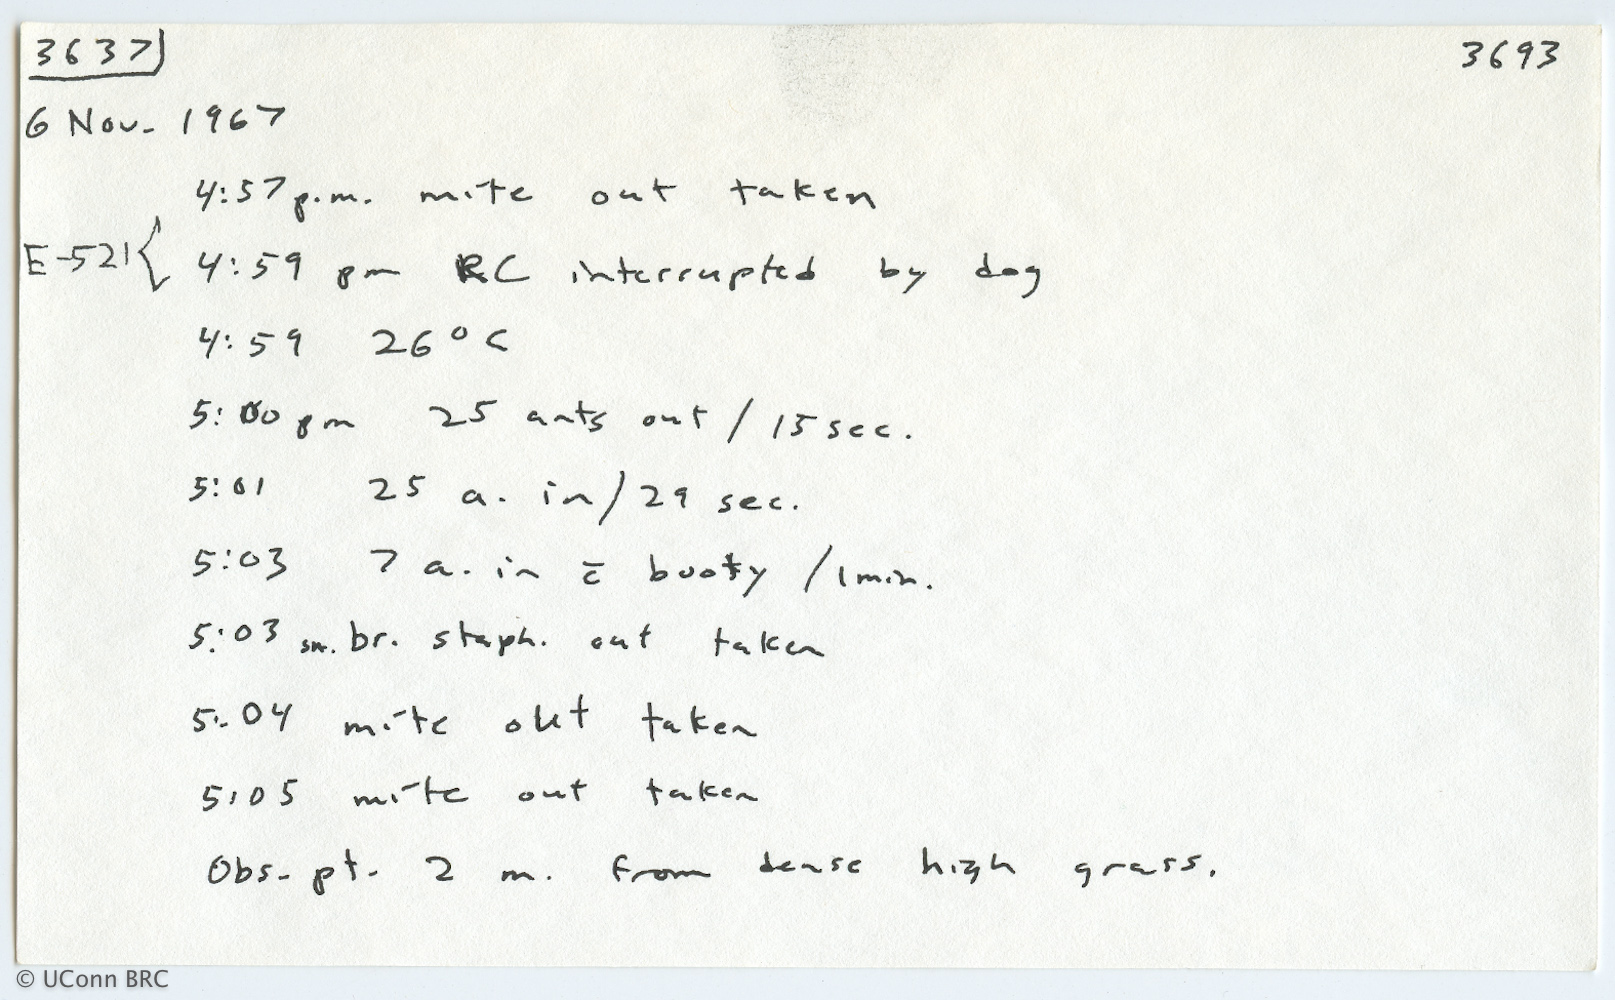 3637 3693
6 Nov. 1967
4:57 p.m. mite out taken
E-521 { 4:59 pm RC interrupted by dog
4:59 26° C
5:00 pm 25 ants out / 15 sec.
5:01 25 a. in / 29 sec.
5:03 7 a. in c̄ booty / 1 min.
5:03 sm. br. staph. out taken
5:04 mite out taken
5:05 mite out taken
Obs. pt. 2 m. from dense high grass.
© UConn BRC